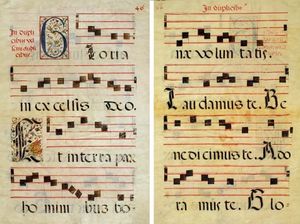 In dupli
cibus vel
Gloria
in excelsis Deo.
Et in terra pax
hominibus bo-
In duplicibus
næ voluntatis.
Laudamus te. Be
nedicimus te. Ado
ramus te. Glo